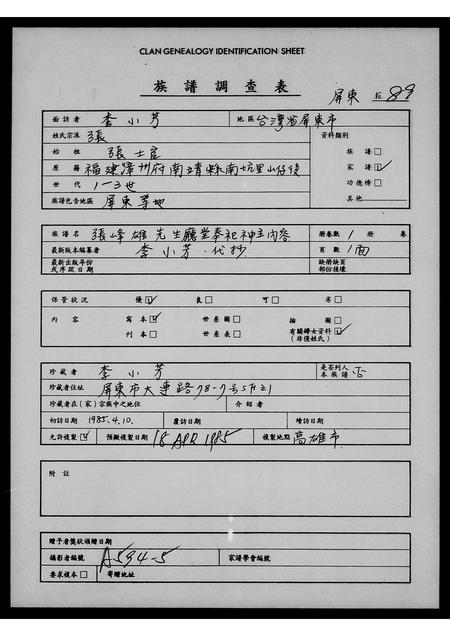 CLAN GENEALOGY IDENTIFICATION SHEET
族譜調查表
屏東 89
面訪者 李小芳 地區 台灣省屏東市
姓氏宗派 張 資料類別
始祖 張士星 族譜□
原籍 福建漳州府南靖縣南坑里山仔後 家譜☑
世代 1-3世 功德榜□
族譜包含地區 屏東等地 其他
族譜名 張峰雄先生廳堂奉祀神主內容 冊卷數 1 冊 卷
最新版本編纂者 李小芳·代抄 頁數 1面
最新出版年份或序跋日期 缺冊缺頁部份損壞
保管狀況 優☑ 良□ 可□ 劣□
內容 寫本☑ 世系圖□ 插圖□
刊本□ 世系表□ 有關婦女資料☑
(非僅姓氏)
珍藏者 李小芳 是否列入本族譜 否
珍藏者住址 屏東市大連路78-7号5F之1
珍藏者在(家)宗族中之地位 介紹者
初訪日期 1985.4.10. 覆訪日期 續訪日期
允許複製☑ 預擬複製日期 18 APR 1985 複製地點 高雄市
附註
贈予者獎狀頒贈日期
攝影者編號 A594-5 家譜學會編號
要求複本□ 寄贈地址